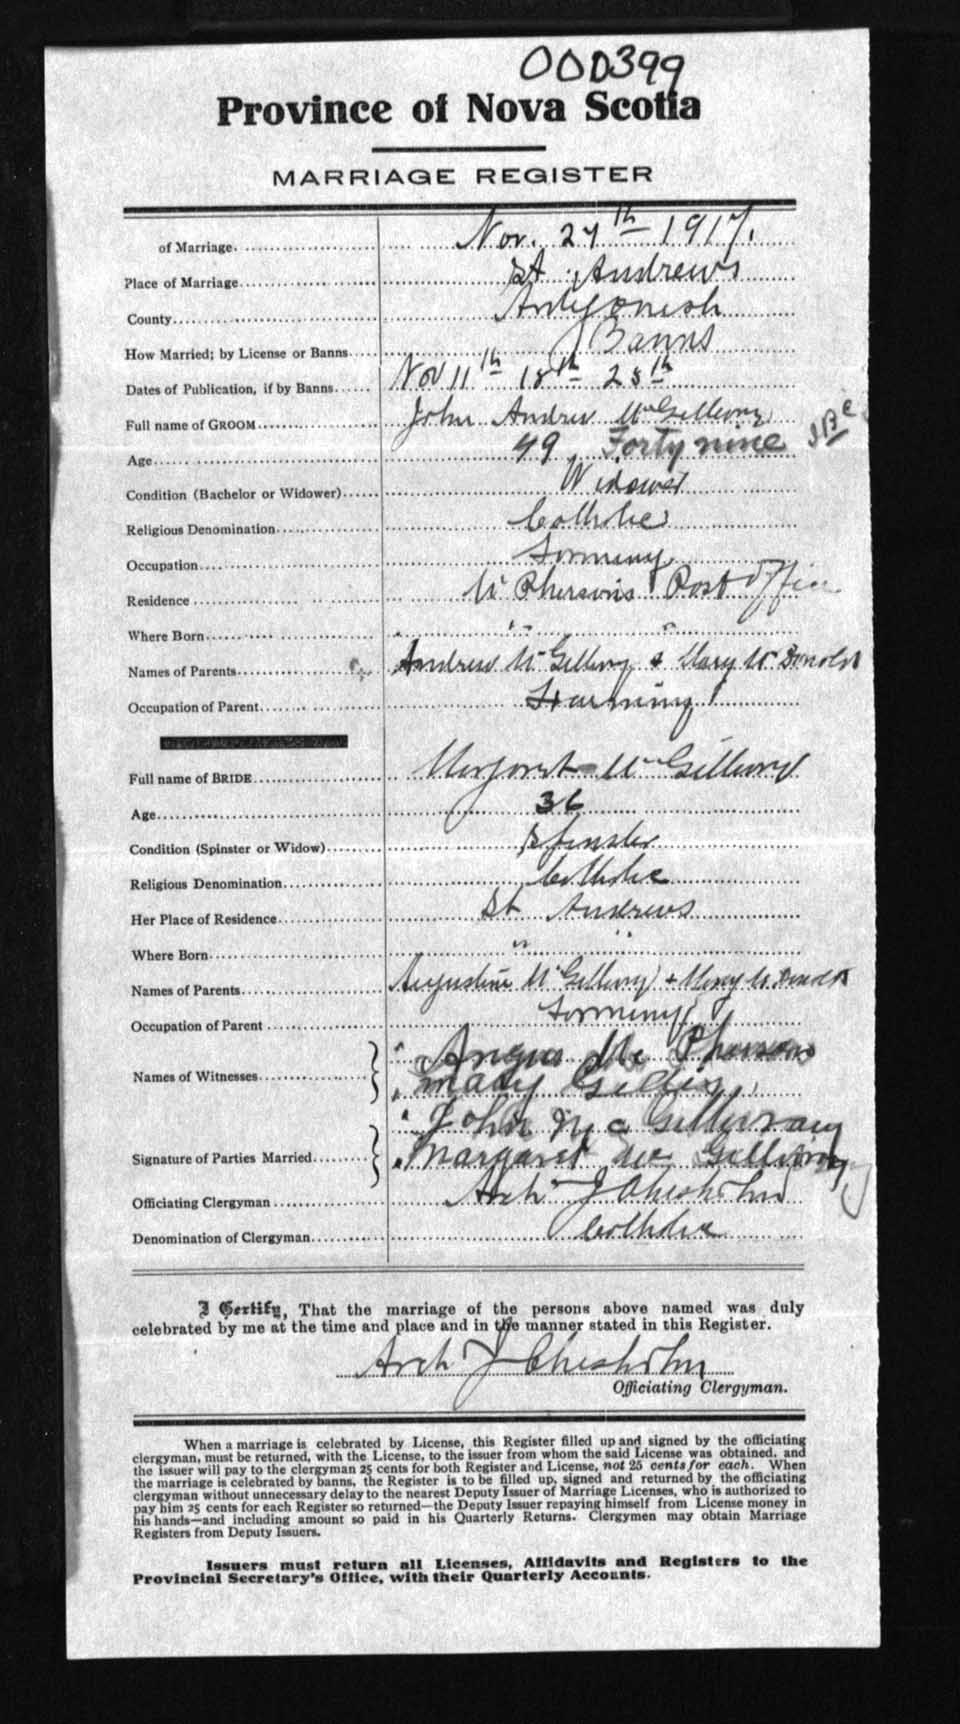 OOD399
Province of Nova Scotia
MARRIAGE REGISTER
of Marriage Nov. 27th 1917.
Place of Marriage St Andrews
County Antigonish
How Married; by License or Banns Banns
Dates of Publication, if by Banns Nov 11th 18th 25th
Full name of GROOM John Andrew McGillivray
Age 49 Forty nine
Condition (Bachelor or Widower) Widower
Religious Denomination Catholic
Occupation Farming
Residence McPhersons Post Office
Where Born " " "
Names of Parents Andrew McGillivray & Mary McDonald
Occupation of Parent Farming
Full name of BRIDE Margaret McGillivray
Age 36
Condition (Spinster or Widow) Spinster
Religious Denomination Catholic
Her Place of Residence St Andrews
Where Born " "
Names of Parents Augustine McGillivray + Mary McDonald
Occupation of Parent Farming
Names of Witnesses Angus Mc Pherson
Mary Gillis
Signature of Parties Married John Mc Gillivray
Margaret Mc Gillivray
Officiating Clergyman Arch J Chisholm
Denomination of Clergyman Catholic
I Certify, That the marriage of the persons above named was duly
celebrated by me at the time and place and in the manner stated in this Register.
Arch J Chisholm
Officiating Clergyman.
When a marriage is celebrated by License, this Register filled up and signed by the officiating
clergyman, must be returned, with the License, to the issuer from whom the said License was obtained, and
the issuer will pay to the clergyman 25 cents for both Register and License, not 25 cents for each. When
the marriage is celebrated by banns, the Register is to be filled up, signed and returned by the officiating
clergyman without unnecessary delay to the nearest Deputy Issuer of Marriage Licenses, who is authorized to
pay him 25 cents for each Register so returned—the Deputy Issuer repaying himself from License money in
his hands—and including amount so paid in his Quarterly Returns. Clergymen may obtain Marriage
Registers from Deputy Issuers.
Issuers must return all Licenses, Affidavits and Registers to the
Provincial Secretary's Office, with their Quarterly Accounts.